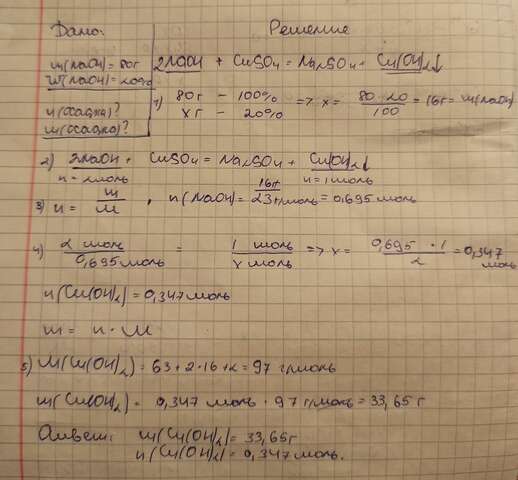 Дано:
Решение
m(NaOH) = 80г
W(NaOH) = 20%
n(осадка)?
m(осадка)?
2NaOH + CuSO4 = Na2SO4 + Cu(OH)2↓
1) 80г - 100% => x = 80·20/100 = 16г = m(NaOH)
xг - 20%
2) 2NaOH + CuSO4 = Na2SO4 + Cu(OH)2↓
n = 2моль n = 1моль
3) n = m/M, n(NaOH) = 16г/23г/моль = 0,695моль
4) 2 моль/0,695моль = 1 моль/x моль => x = 0,695 · 1/2 = 0,347 моль
n(Cu(OH)2) = 0,347 моль
m = n · M
5) M(Cu(OH)2) = 63 + 2·16 + 2 = 97 г/моль
m(Cu(OH)2) = 0,347 моль · 97 г/моль = 33,65 г
Ответ: m(Cu(OH)2) = 33,65г
n(Cu(OH)2) = 0,347 моль.